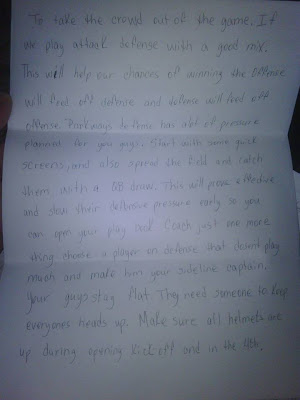 To take the crowd out of the game. If
we play attack defense with a good mix.
This will help our chances of winning the offense
will feed off defense and defense will feed off
offense. Parkways defense has alot of pressure
planned for you guys. Start with some quick
screens, and also spread the field and catch
them with a QB draw. This will prove effective
and slow their pressure early so you
can open your play book Coach just one more
thing choose a player on defense that doesn't play
much and make him your sideline captain.
Your guys stay flat They need someone to keep
everyones heads up. Make sure all helmets are
up during opening kick off and in the 4th.